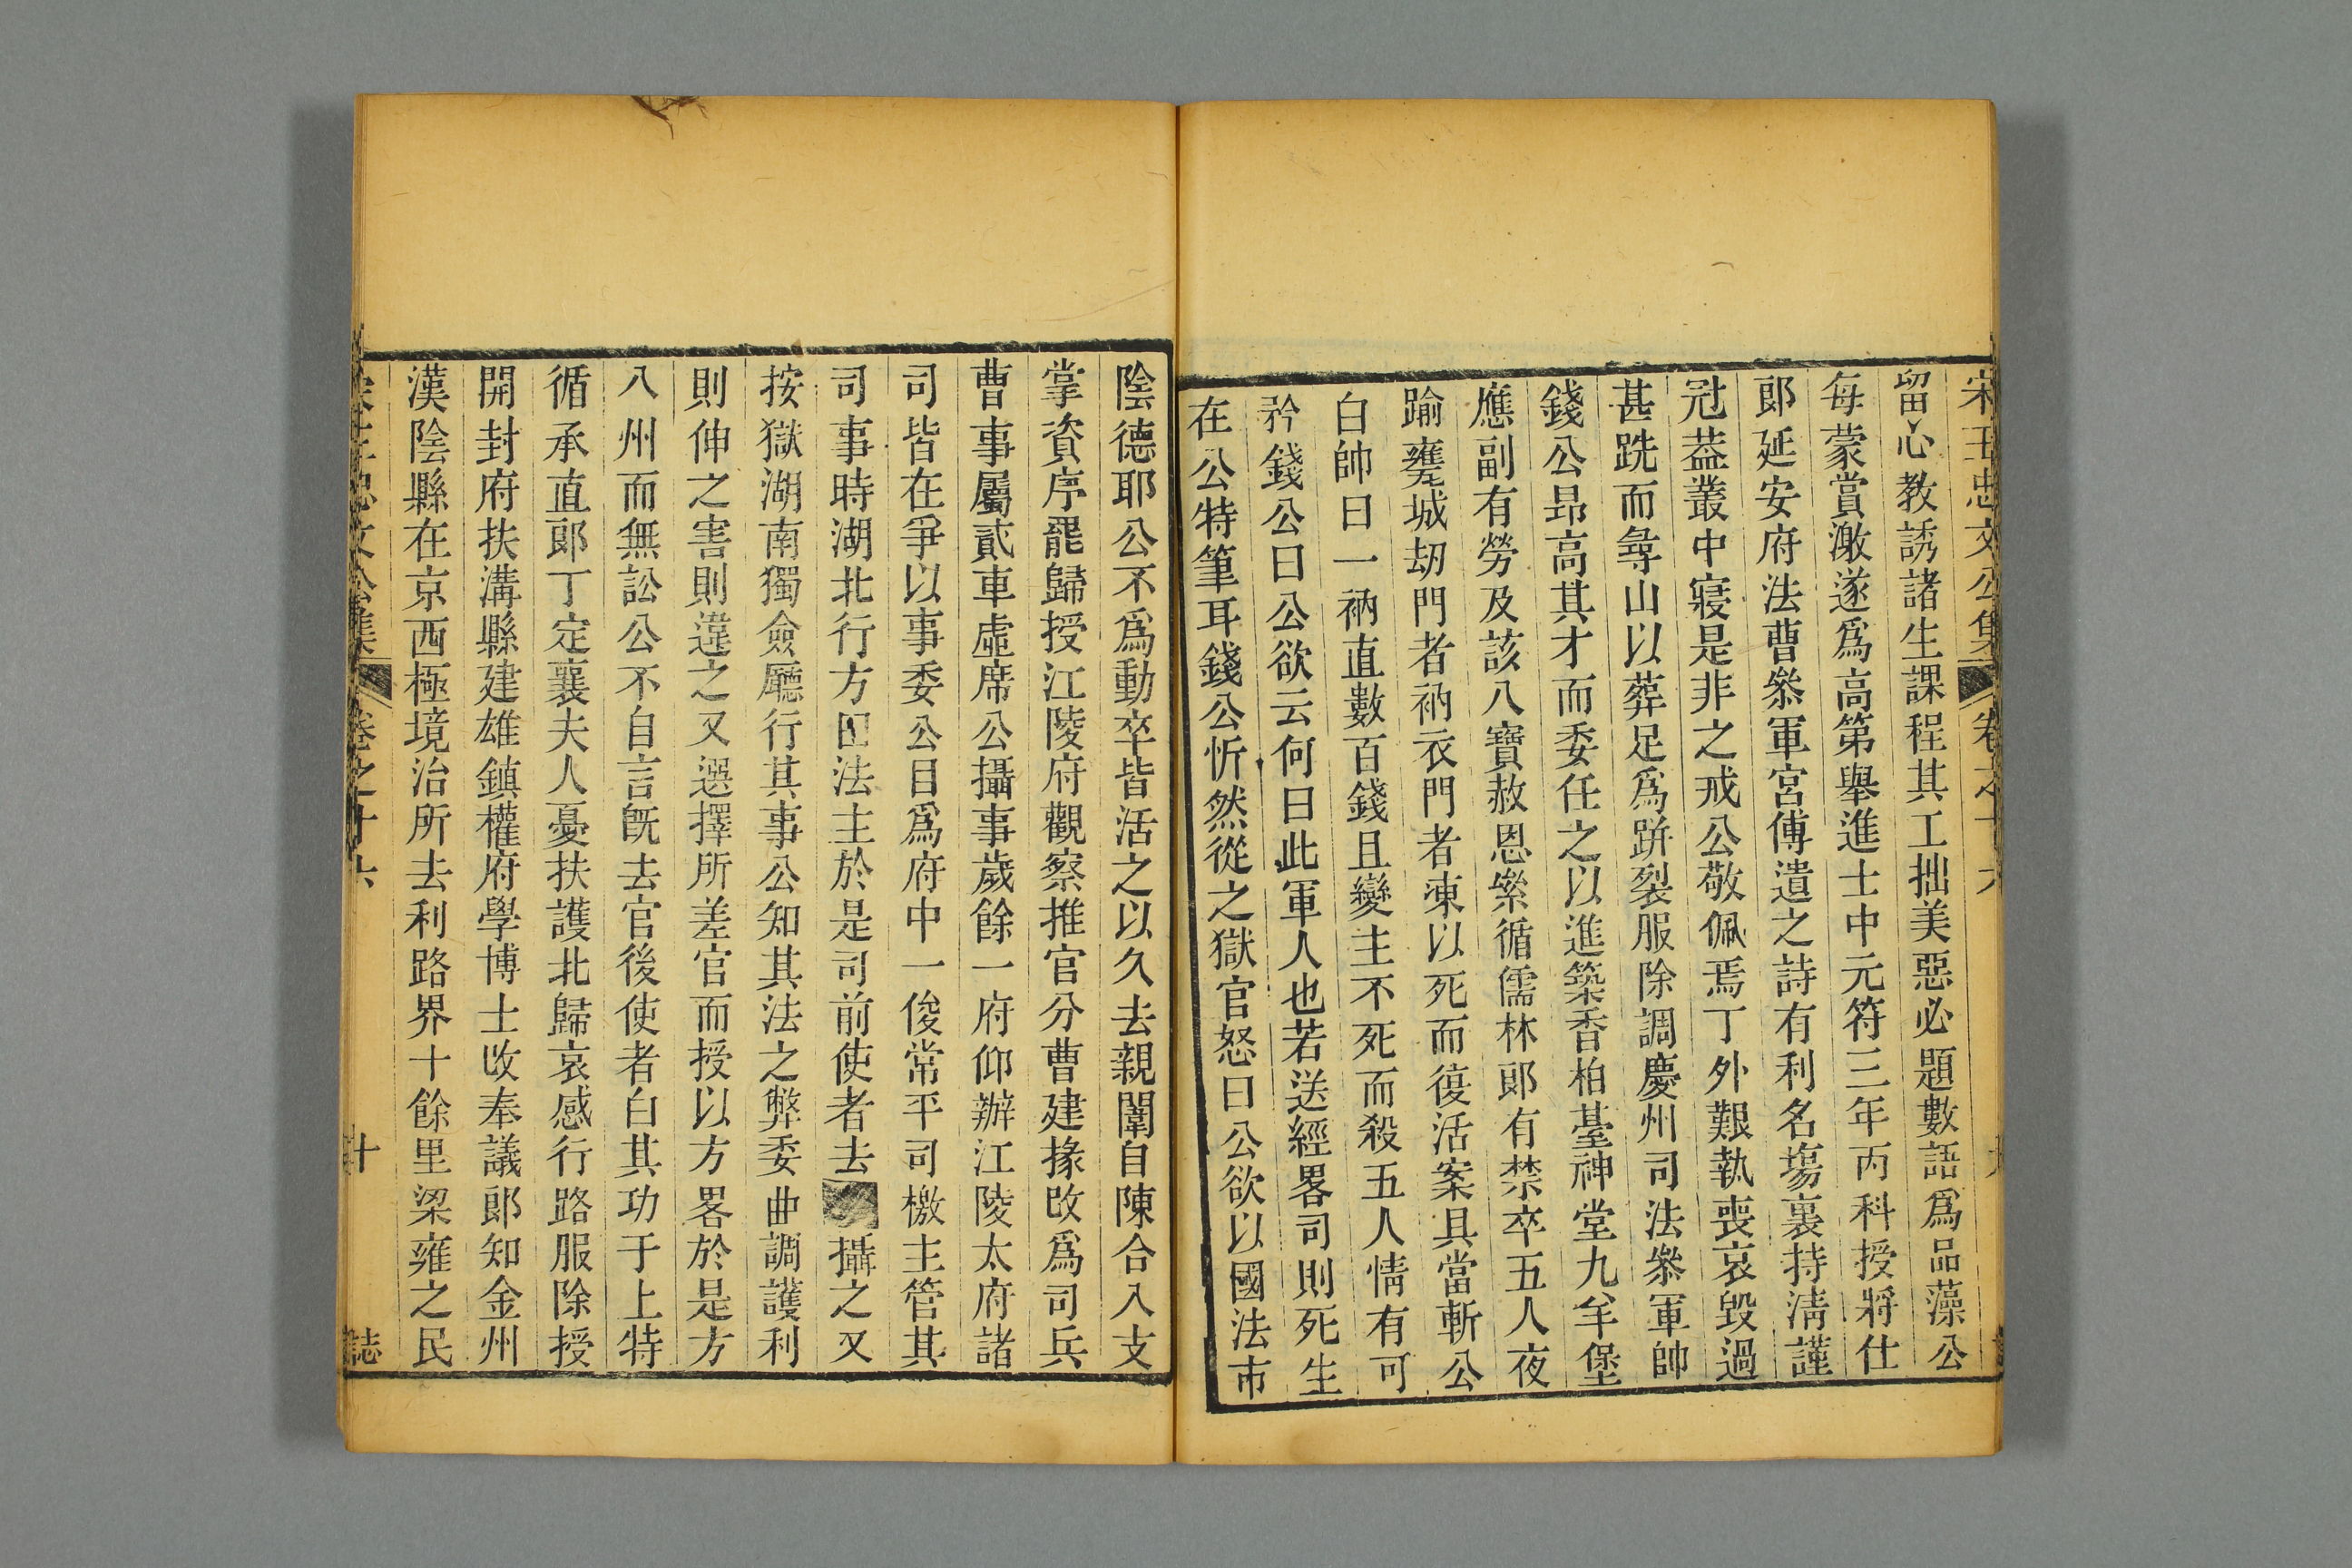 宋王忠文公集 卷之十六
留心教誘諸生課程其工拙美惡必題數語爲品藻公
每蒙賞激遂爲高第舉進士中元符三年丙科授將仕
郎延安府法曹叅軍宮傅遺之詩有利名塲裏持淸謹
冠葢叢中寢是非之戒公敬佩焉丁外艱執喪哀毀過
甚跣而㝷山以葬足爲跰裂服除調慶州司法叅軍帥
錢公昻高其才而委任之以進築香柏臺神堂九羊堡
應副有勞及該八寶赦恩縈循儒林郎有禁卒五人夜
踰甕城刼門者衲衣門者凍以死而復活案具當斬公
白帥曰一衲直數百錢且變主不死而殺五人情有可
矜錢公曰公欲云何曰此軍人也若送經畧司則死生
在公特筆耳錢公忻然從之獄官怒曰公欲以國法市
陰德耶公不爲動卒皆活之以久去親闈自陳合入支
掌資序罷歸授江陵府觀察推官分曹建掾改爲司兵
曹事屬貳車虛席公攝事歲餘一府仰辦江陵太府諸
司皆在爭以事委公目爲府中一俊常平司檄主管其
司事時湖北行方田法主於是司前使者去攝之又
按獄湖南獨僉廳行其事公知其法之弊委曲調護利
則伸之害則違之又選擇所差官而授以方畧於是方
八州而無訟公不自言旣去官後使者白其功于上特
循承直郎丁定襄夫人憂扶護北歸哀感行路服除授
開封府扶溝縣建雄鎮權府學博士改奉議郎知金州
漢陰縣在京西極境治所去利路界十餘里梁雍之民
宋王忠文公集 卷之十六 十 誌